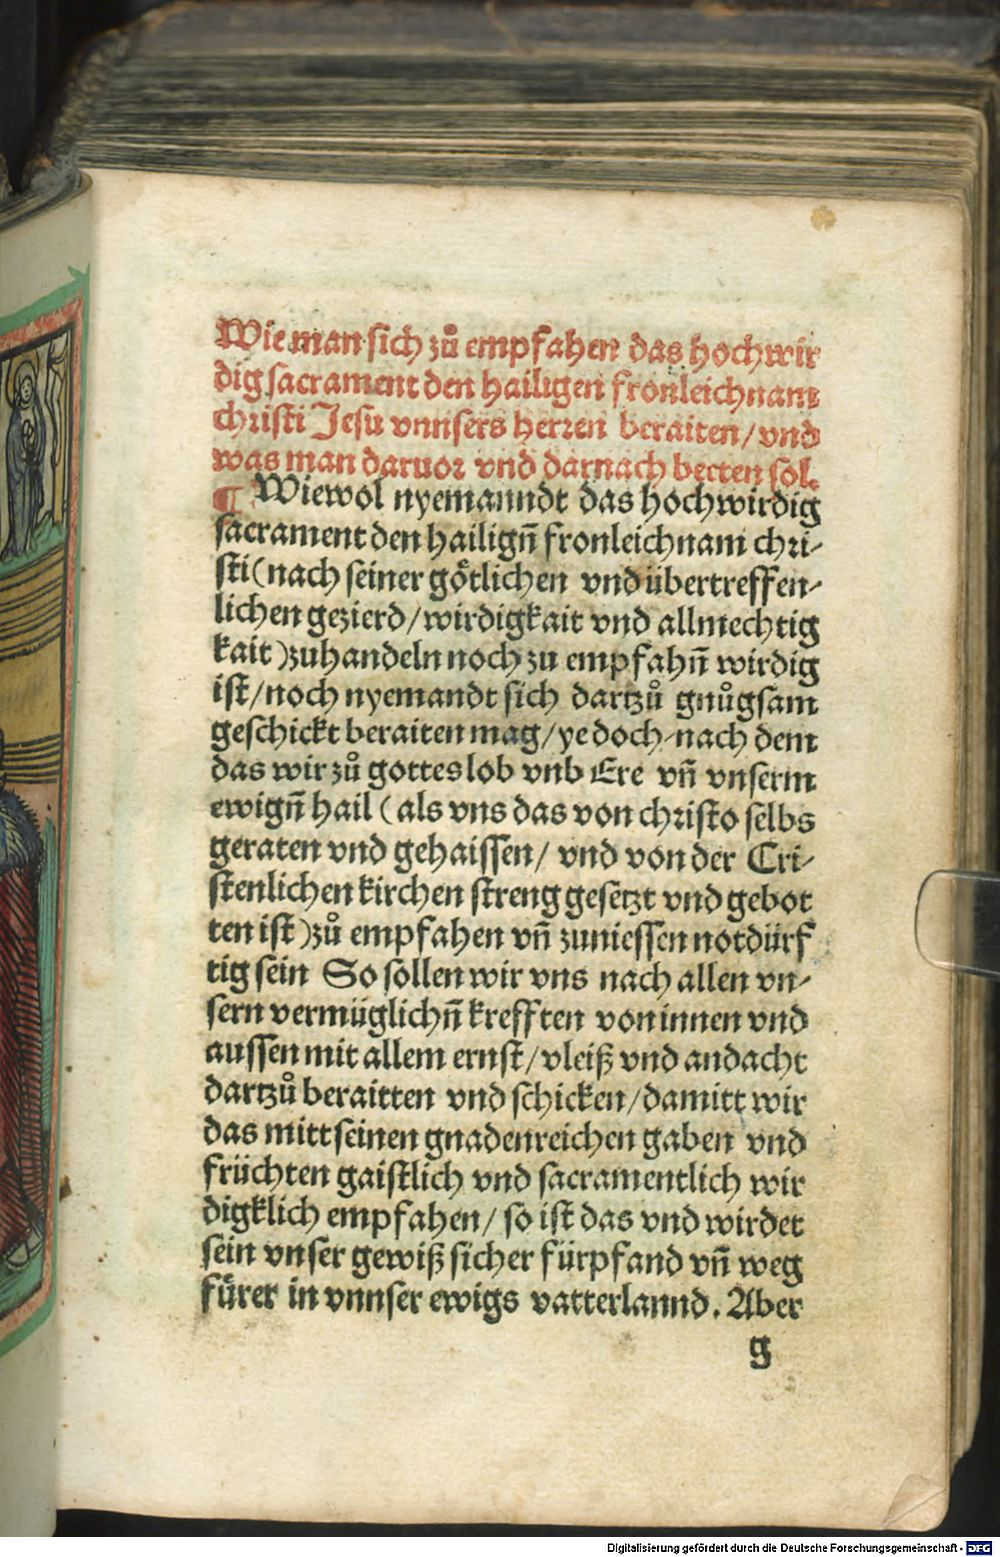 Wie man sich zů empfahen das hochwir
dig sacrament den hailigen fronleichnam
christi Jesu vnnsers herren beraiten/vnd
was man daruor vnd darnach betten sol.
¶ Wiewol nyemanndt das hochwirdig
sacrament den hailign̄ fronleichnam chri-
sti (nach seiner gȯtlichen vnd übertreffen-
lichen gezierd/wirdigkait vnd allmechtig
kait) zuhandeln noch zu empfahn̄ wirdig
ist/noch nyemandt sich dartzů gnůgsam
geschickt beraiten mag/yedoch nach dem
das wir zů gottes lob vnb Ere vn̄ vnserm
ewign̄ hail (als vns das von christo selbs
geraten vnd gehaissen/ vnd von der Cri-
stenlichen kirchen streng gesetzt vnd gebot
ten ist) zů empfahen vn̄ zuniessen notdürf
tig sein So sollen wir vns nach allen vn-
sern vermüglichn̄ krefften von innen vnd
aussen mit allem ernst/vleiß vnd andacht
dartzů beraitten vnd schicken/damitt wir
das mitt seinen gnadenreichen gaben vnd
früchten gaistlich vnd sacramentlich wir
digklich empfahen/ so ist das vnd wirdet
sein vnser gewiß sicher fürpfand vn̄ weg
fürer in vnnser ewigs vatterlannd. Aber
g
Digitalisierung gefördert durch die Deutsche Forschungsgemeinschaft - DFG